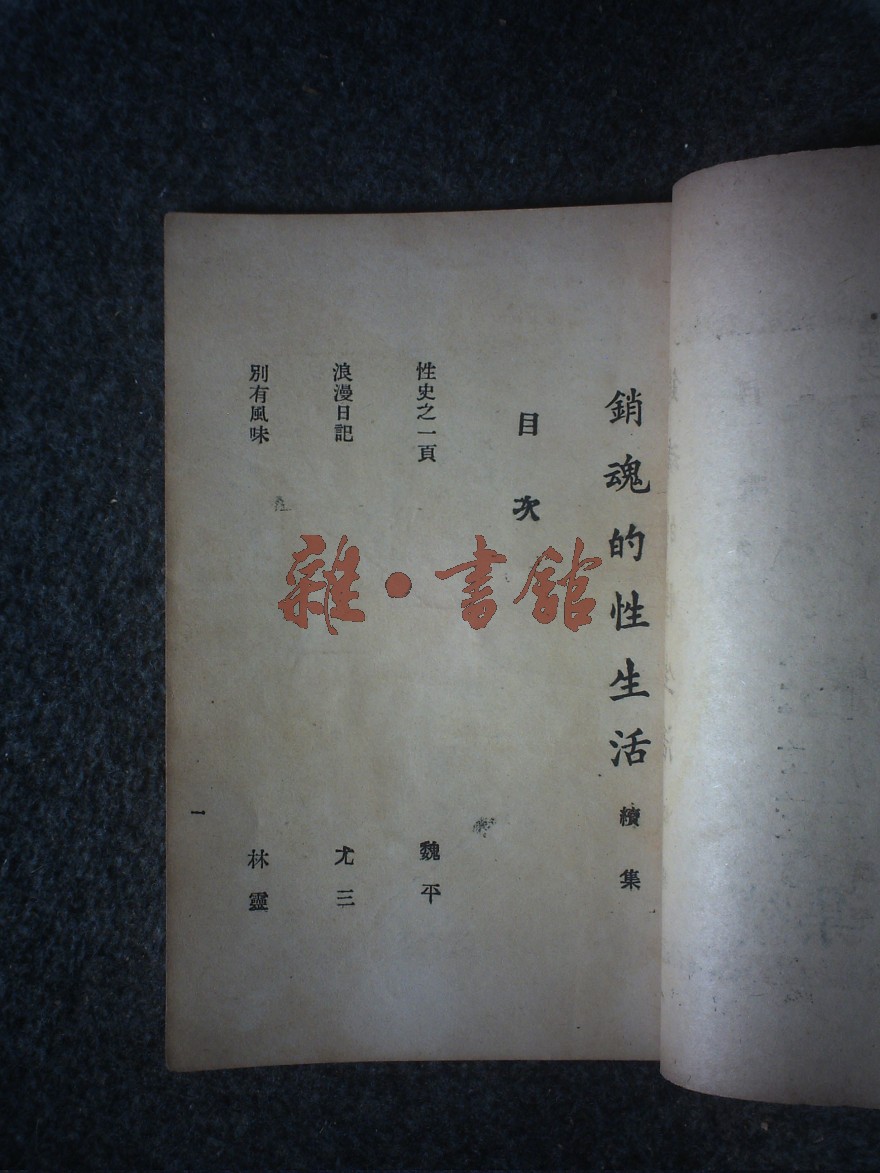 銷魂的性生活 續集
目次
性史之一頁 魏平
浪漫日記 尤三
別有風味 林靈
一
雜·書館